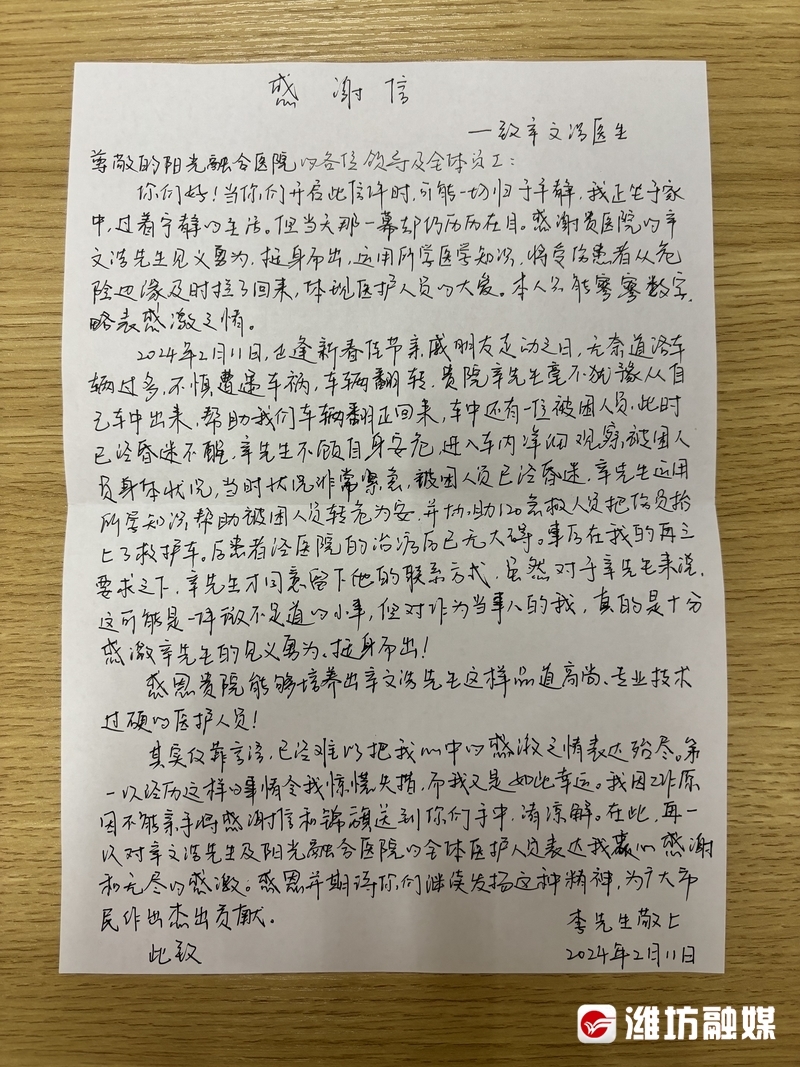 感谢信
一致辛文浩医生
尊敬的阳光融合医院的各位领导及全体员工：
你们好！当你们开启此信件时，可能一切归于平静，我正坐于家
中，过着宁静的生活。但当天那一幕却仍历历在目。感谢贵医院的辛
文浩先生见义勇为，挺身而出，运用所学医学知识，将受伤患者从危
险边缘及时拉了回来，体现医护人员的大爱。本人只能寥寥数字，
略表感激之情。
2024年2月11日，正逢新春佳节亲戚朋友走动之日，无奈道路车
辆过多，不慎遭遇车祸，车辆翻转。贵院辛先生毫不犹豫从自
己车中出来，帮助我们车辆翻正回来，车中还有一位被困人员，此时
已经昏迷不醒，辛先生不顾自身安危，进入车内详细观察被困人
员身体状况，当时状况非常紧急，被困人员已经昏迷，辛先生运用
所学知识，帮助被困人员转危为安，并协助120急救人员把伤员抬
上了救护车。后患者经医院的治疗后已无大碍。事后在我的再三
要求之下，辛先生才同意留下他的联系方式，虽然对于辛先生来说，
这可能是一件微不足道的小事，但对作为当事人的我，真的是十分
感激辛先生的见义勇为、挺身而出！
感恩贵院能够培养出辛文浩先生这样品道高尚、专业技术
过硬的医护人员！
其实仅靠言语，已经难以把我心中的感激之情表达殆尽。第
一次经历这样的事情令我惊慌失措，而我又是如此幸运。我因工作原
因不能亲手将感谢信和锦旗送到你们手中，请凉解。在此，再一
次对辛文浩先生及阳光融合医院的全体医护人员表达我衷心感谢
和无尽的感激。感恩并期待你们继续发扬这种精神，为广大市
民作出杰出贡献。
李先生敬上
此致
2024年2月11日
潍坊融媒